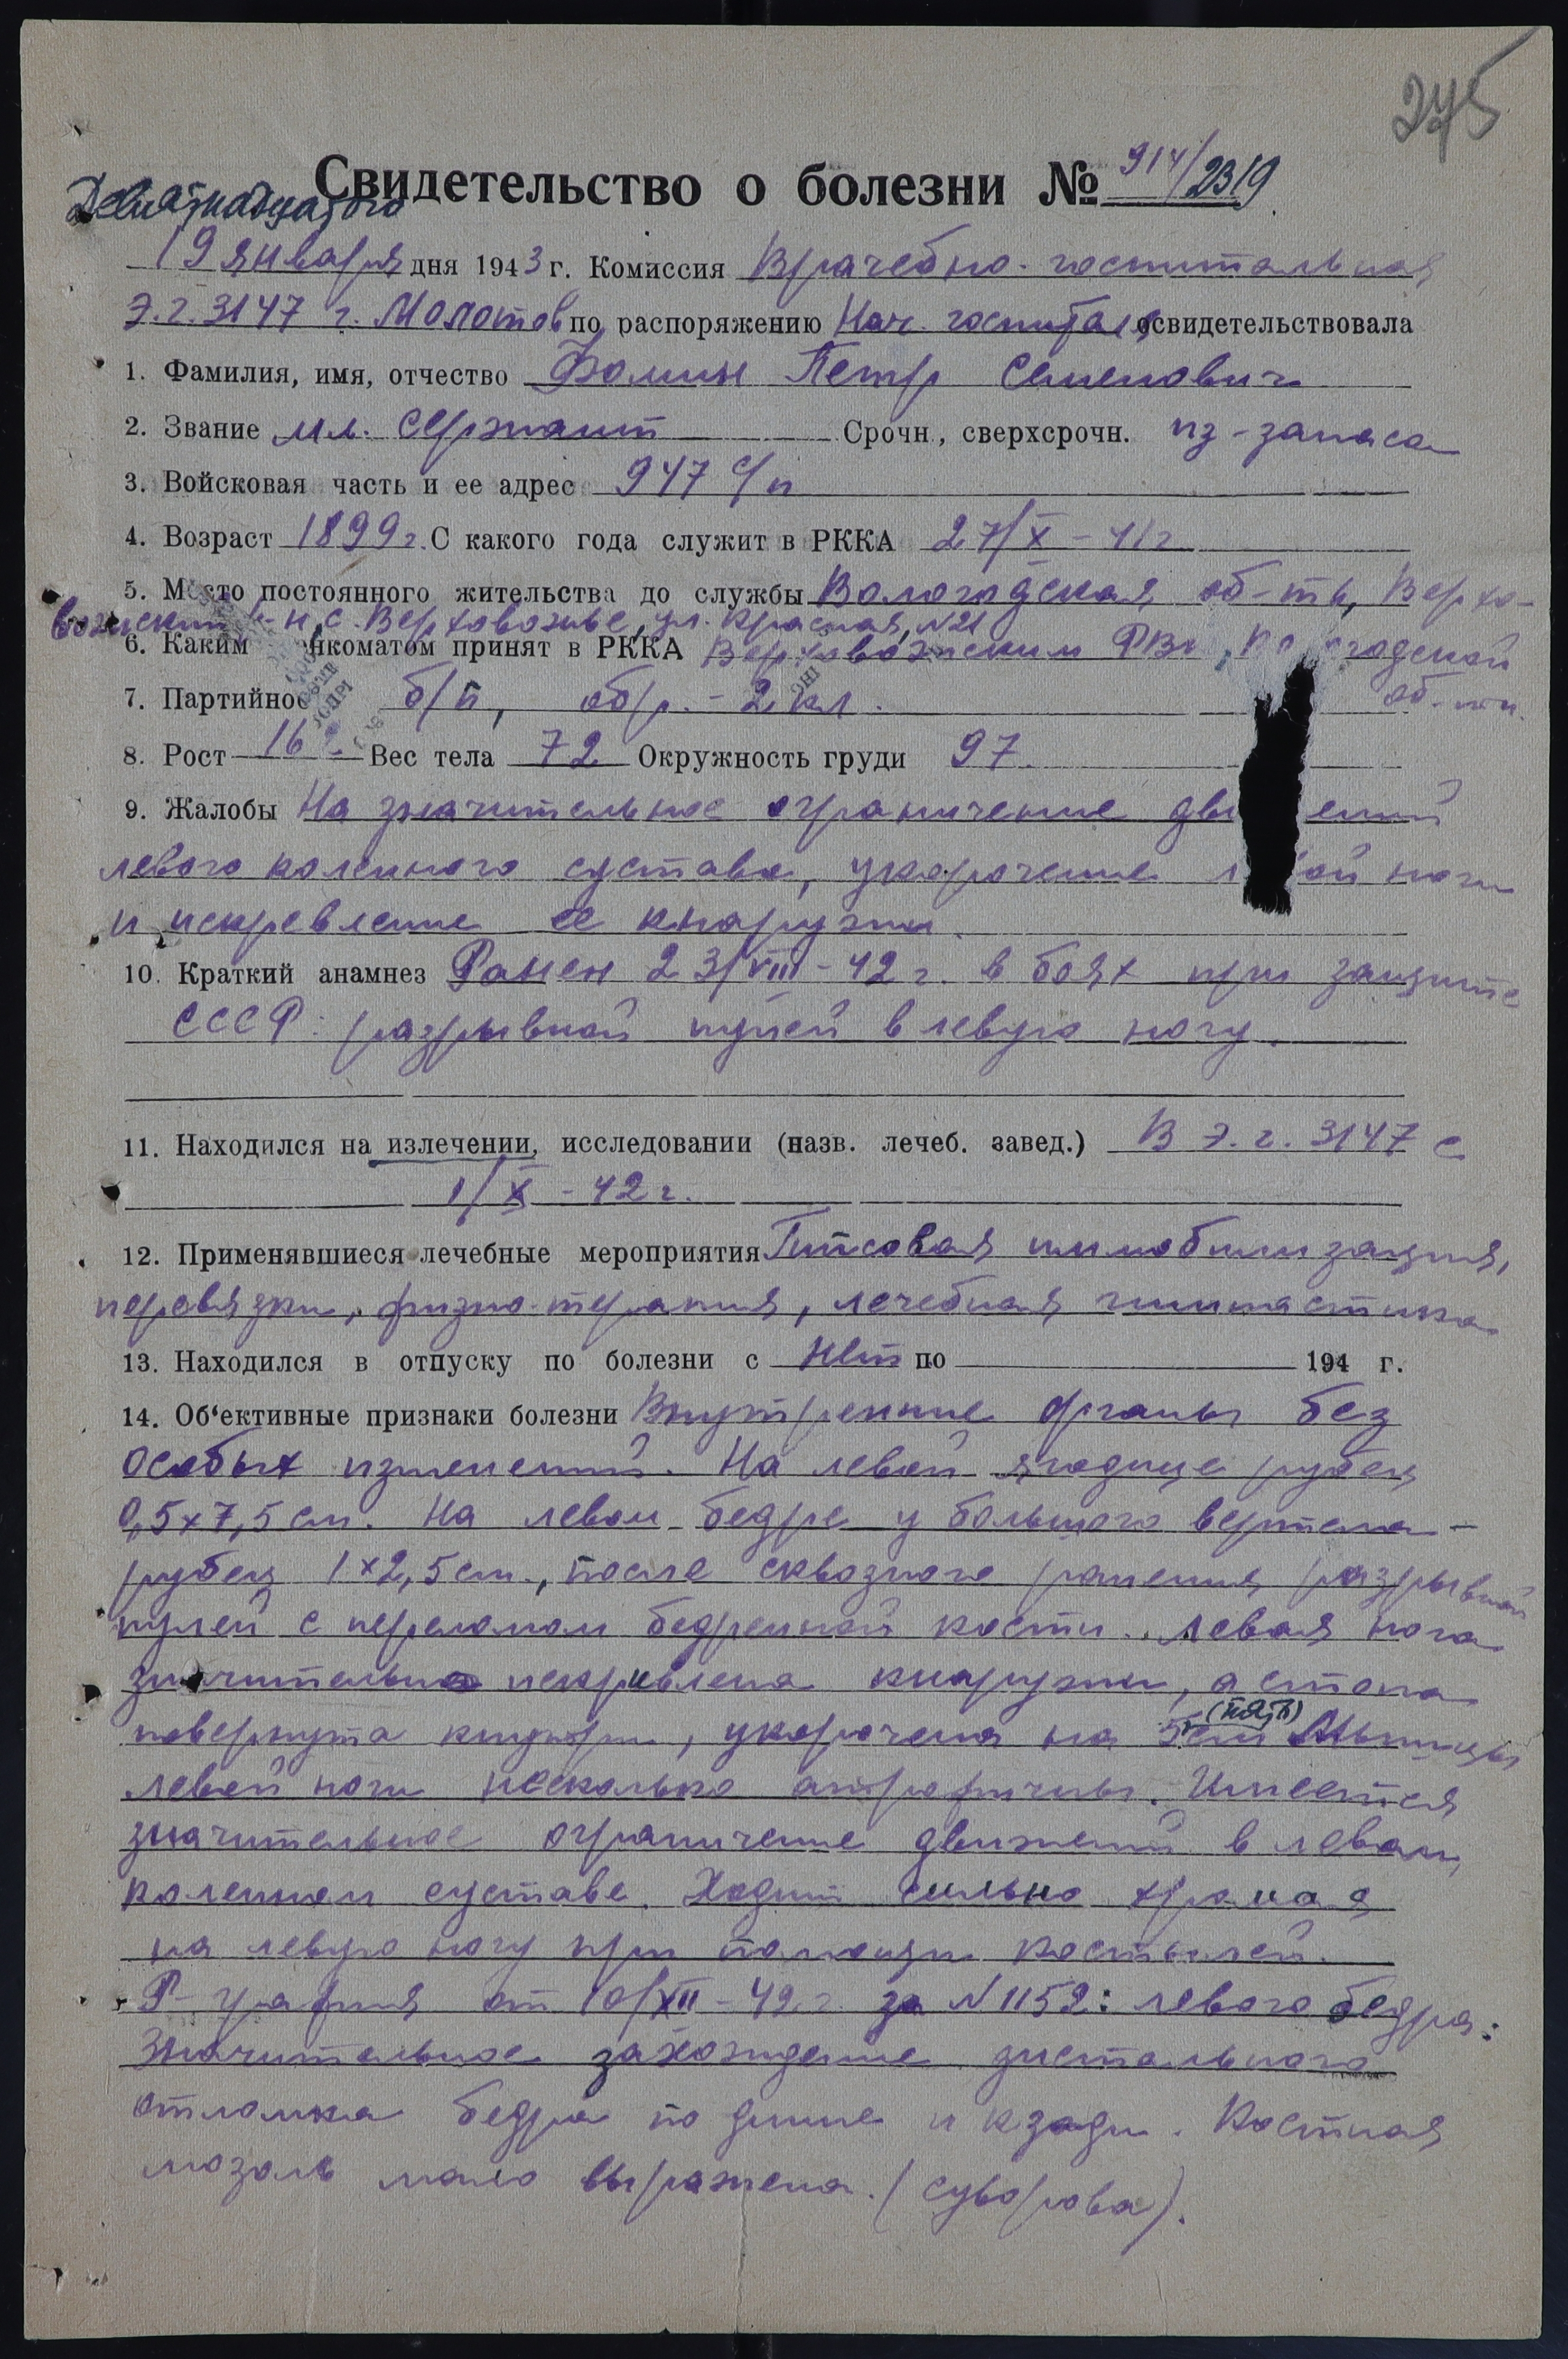 275
Свидетельство о болезни № 914/2319
Девятнадцатого
19 января дня 1943 г. Комиссия Врачебно-госпитальная
Э.г. 3147 г. Молотов по распоряжению Нач. госпиталя освидетельствовала
1. Фамилия, имя, отчество Фомин Петр Семенович
2. Звание мл. сержант Срочн., сверхсрочн. из-запаса
3. Войсковая часть и ее адрес 947 с/п
4. Возраст 1899 г. С какого года служит в РККА 27/X-41 г
5. Место постоянного жительства до службы Вологодская об-ть, Верхо-
важский р-н, с. Верховажье, ул. Красная, N21
6. Каким нкоматом принят в РККА Верховажским РВК, Во годской
об-ти.
7. Партийнос б/п, обр. - 2 кл.
8. Рост 16 Вес тела 72 Окружность груди 97
9. Жалобы На значительное ограничение дви ений
левого коленного сустава, укорочение л вой ноги
и искревление ее кнаружи.
10. Краткий анамнез Ранен 23/VIII-42 г. в боях при защите
СССР: разрывной пулей в левую ногу.
11. Находился на излечении, исследовании (назв. лечеб. завед.) В Э.г. 3147 с
1/X-42 г.
12. Применявшиеся лечебные мероприятия Гипсовая иммобилизация,
перевязки, физио-терапия, лечебная гимнастика
13. Находился в отпуску по болезни с нет по 194 г.
14. Об'ективные признаки болезни Внутренние органы без
особых изменений. На левой ягодице рубец
0,5х7,5 см. На левом бедре у большого вертела -
рубец 1х2,5 см., после сквозного ранения разрывной
пулей с переломом бедренной кости. Левая нога
значительно искривлена кнаружи, а стопа
повернута кнутри, укорочена на 5 (пять) см Мышцы
левой ноги несколько атрофичны. Имеется
значительное ограничение движений в левом
коленном суставе. Ходит сильно хромая
на левую ногу при помощи костылей.
Р-графия от 10/XII-42 г. за N 1152: левого бедра:
Значительное захождение дистального
отломка бедра по длине и кзади. Костная
мозоль мало выражена. (Суворова).